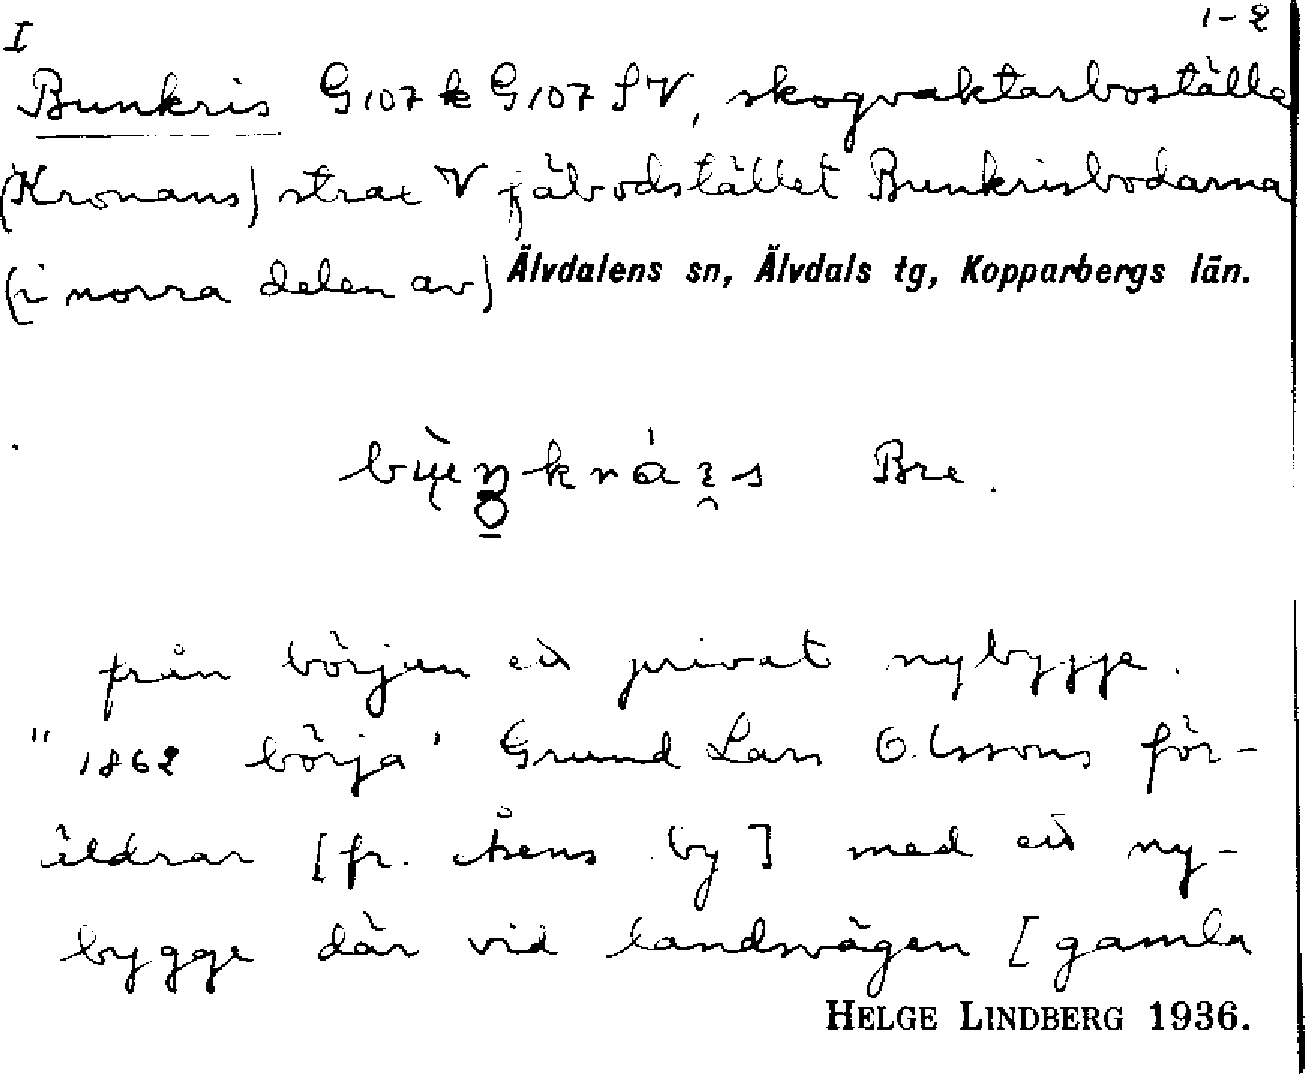 I 1-2
Bunkris G107k G107 SV, skogvaktarboställe
(Kronans) strax V fjäbodstället Bunkrisbodarna
(i norra delen av) Älvdalens sn, Älvdals tg, Kopparbergs län.
Bre.
från början ett privat nybygge.
"1862 börja' Grund Lars Olssons för-
äldrar [fr. Åsens by] med ett ny-
bygge där vid landsvägen [gamla
HELGE LINDBERG 1936.